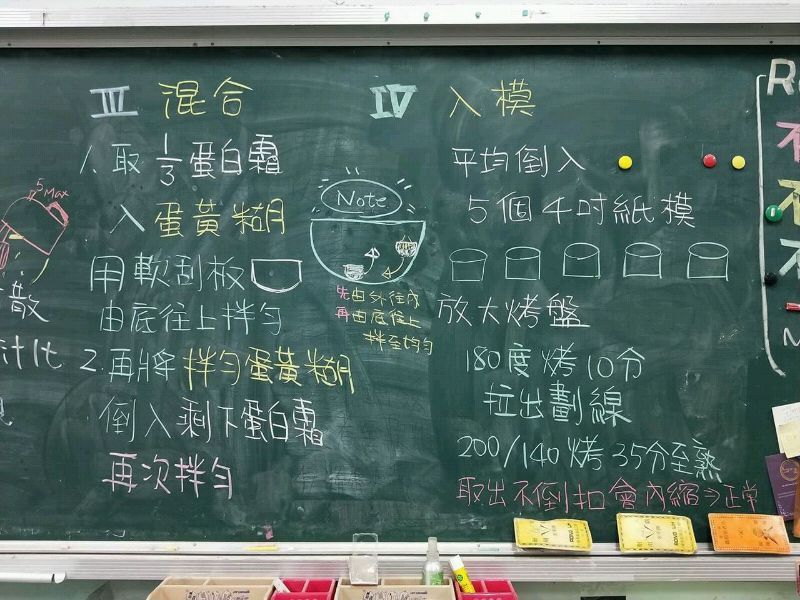 5 Max
散
Ⅲ 混合
1. 取 1/3 蛋白霜
入 蛋黃糊
用軟刮板
由底往上拌勻
2. 再將拌勻蛋黃糊
倒入剩下蛋白霜
再次拌勻
Note
先由外往內
再由底往上
拌至均勻
Ⅳ 入模
平均倒入
5個4吋紙模
放大烤盤
180度烤10分
拉出劃線
200/140烤35分至熟
取出不倒扣會內縮⇒正常
R
不
不
不